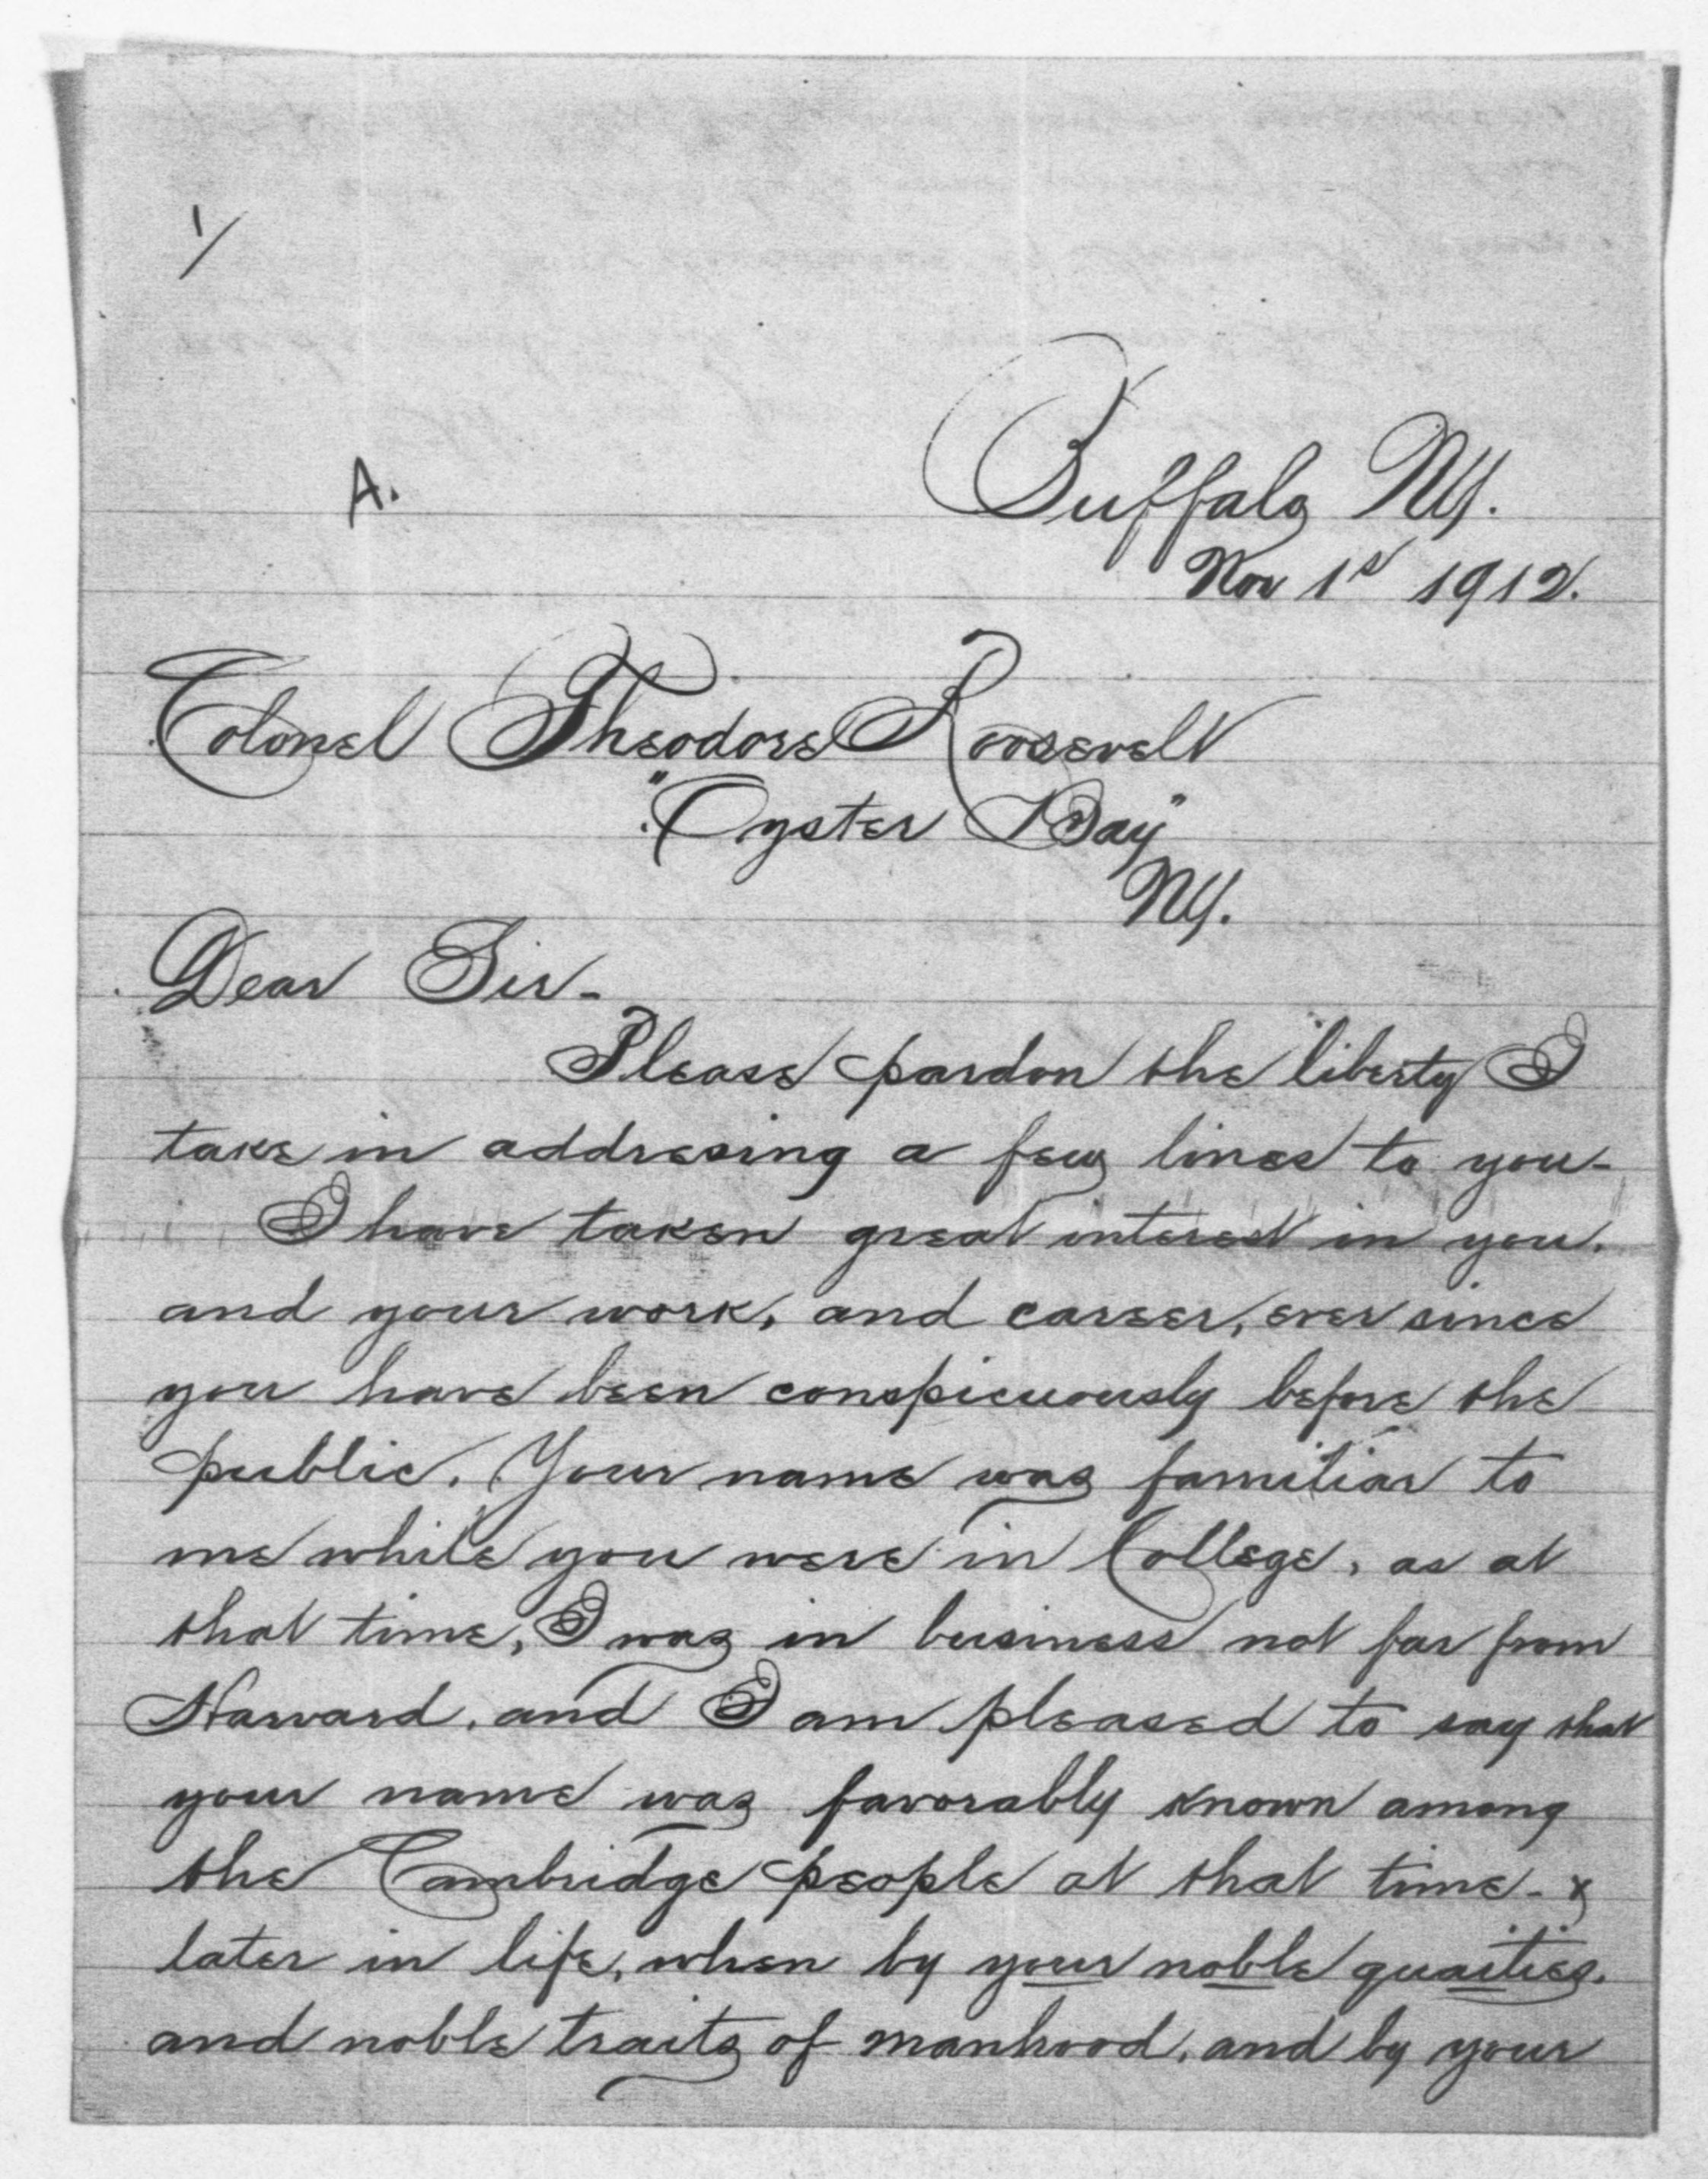 1/
A.
Buffalo NY.
Nov 1st 1912.
Colonel Theodore Roosevelt
"Oyster Bay"
NY.
Dear Sir-
Please pardon the liberty I
take in addresing a few lines to you-
I have taken great interest in you.
and your work, and career, ever since
you have been conspicuously before the
public. Your name was familiar to
me while you were in College, as at
that time, I was in business not far from
Harvard. and I am pleased to say that
your name was favorably known among
the Cambridge people at that time- &
later in life, when by your noble quaities.
and noble traits of manhood, and by your